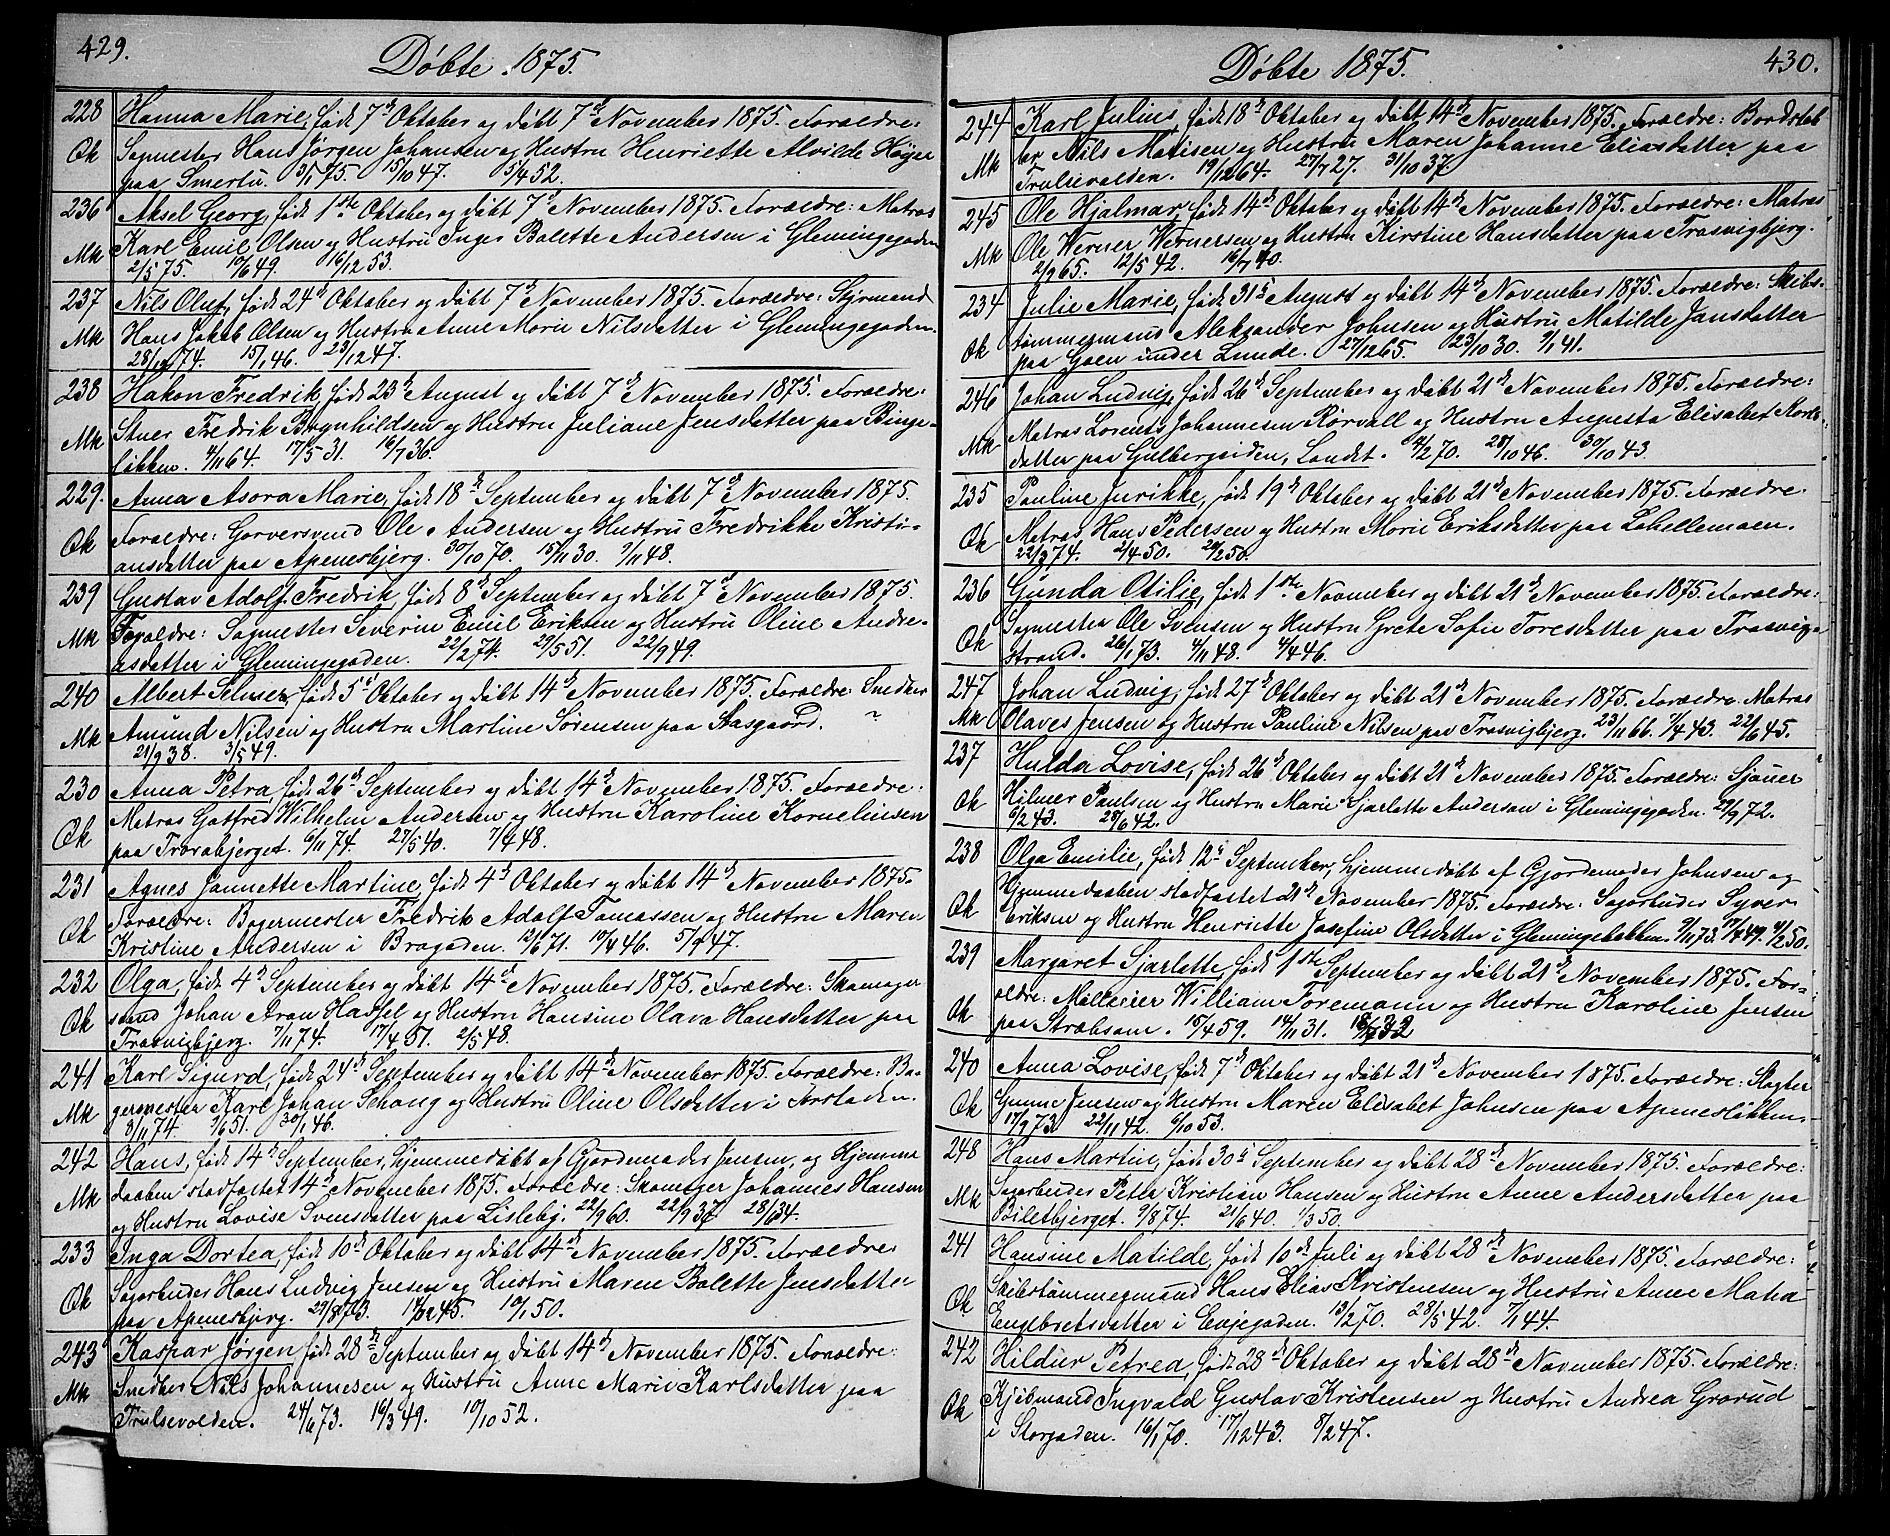 429.
Døbte 1875.
228 Hanna Marie, født 7de Oktober og døbt 7de November 1875. Forældre:
Qk Sagmester Hans Jørgen Johansen og Hustru Henriette Alvilde Høyer
paa Smertu. 3/1 75. 15/10 47. 5/4 52.
236 Aksel Georg, født 1ste Oktober og døbt 7de November 1875. Forældre: Matros
Mk Karl Emil Olsen og Hustru Inger Bolette Andersen i Glemmingegaden
2/5 75. 10/6 49. 16/12 53.
237 Nils Oluf, født 24de Oktober og døbt 7de November 1875. Forældre: Styrmand
Mk Hans Jakob Olsen og Hustru Anne Marie Nilsdatter i Glemmingegaden.
74. 15/1 46. 23/12 47.
238 Hakon Fredrik, født 23de August og døbt 7de November 1875. Forældre:
Mk Stuer Fredrik Brynhildsen og Hustru Juliane Jensdatter paa Binge-
løkken. 4/11 64. 17/5 31. 16/7 36.
229. Anna Asora Marie, født 18de September og døbt 7de November 1875.
Qk Forældre: Garversvend Ole Andersen og Hustru Fredrikke Kristi-
ansdatter paa Apenesbjerg. 30/10 70. 15/11 30. 9/11 48.
239 Gustav Adolf Fredrik, født 8de September og døbt 7de November 1875.
Mk Forældre: Sagmester Severin Emil Eriksen og Hustru Oline Andre-
asdatter i Glemmingegaden. 22/2 74. 29/5 51. 22/9 49.
240 Albert Selmer, født 5te Oktober og døbt 14de November 1875. Forældre: Snedker
Mk Amund Nilsen og Hustru Martine Sørensen paa
21/9 38. 3/5 49.
230 Anna Petra, født 26de September og døbt 14de November 1875. Forældre:
Qk Matros Gotfred Wilhelm Andersen og Hustru Karoline Kornelinsen
paa Trarabjerget. 6/11 74. 27/5 40. 7/4 48.
231 Agnes Jannette Martine, født 4de Oktober og døbt 14de November 1875.
Qk Forældre: Bagermester Fredrik Adolf Tomassen og Hustru Maren
Kristine Andersen i Brogaden. 12/6 71. 19/4 46. 5/9 47.
232 Olga, født 4de September og døbt 14de November 1875. Forældre: Skomager
Qk svend Johan Aron Hassel og Hustru Hansine Olava Hansdatter paa
Trosvigbjerg. 7/11 74. 17/4 51. 2/5 48.
241 Karl Sigurd, født 24de September og døbt 14de November 1875. Forældre: Ba-
Mk germester Karl Johan Schong og Hustru Oline Olsdatter i Forstaden.
8/11 74. 9/6 51. 30/1 46.
242 Hans, født 14de September, hjemmedøbt af Gjordemoder Jensen, og Hjemme
Mk daaben stadfæstet 14de November 1875. Forældre: Skomager Johannes Hansen
og Hustru Lovise Svensdatter paa Lislebj. 22/9 60. 22/9 37. 28/6 34.
233 Inga Dortea, født 10de Oktober og døbt 14de November 1875. Forældre
Qk Sagarbuder Hans Ludvig Jensen og Hustru Maren Bolette Jensdatter
paa Apenesbjerg. 29/8 73. 45. 10/1 50.
243 Kaspar Jørgen, født 28de September og døbt 14de November 1875. Forældre:
Mk Snedker Nils Johannesen og Hustru Anne Marie Karlsdatter paa
Trulsevolden. 24/6 73. 16/3 49. 19/10 52.
430.
Døbte 1875.
244 Karl Julius, født 18de Oktober og døbt 14de November 1875. Forældre: Bordstab
Mk ler Nils Matisen og Hustru Maren Johanne Eliasdatter paa
Trulsevolden. 19/12 64. 27/7 27. 31/10 37.
245 Ole Hjalmar, født 14de Oktober og døbt 14de November 1875. Forældre: Matros
Mk Ole Werner Wernersen og Hustru Kirstine Hansdatter paa Trosvigbjerg.
2/9 65. 12/5 42. 16/7 40.
234 Julie Marie, født 31te August og døbt 14de November 1875. Forældre: Skibs-
Qk tømmermand Aleksander Johnsen og Hustru Matilde Jansdatter
paa Goen under Lunde. 27/12 65. 23/10 30. 9/1 41.
246 Johan Ludvig, født 26de September og døbt 21de November 1875. Forældre:
Mk Matros Lorents Johannesen Rørvall og Hustru Augusta Elisabet
datter paa Gulbergsiden, Landet. 4/2 70. 28/10 46. 30/10 43.
235 Pauline Jurikke, født 19de Oktober og døbt 21de November 1875. Forældre:
Qk Matros Hans Pedersen og Hustru Marie Eriksdatter paa Labellemoen.
22/3 74. 2/4 50. 29/2 50.
236 Gunda Otilie, født 1ste November og døbt 21de November 1875. Forældre:
Qk Sagmester Ole Svensen og Hustru Grete Sofie Toresdatter paa Trosvig-
strand. 26/1 73. 4/11 48. 4/4 46.
247 Johan Ludvig, født 27de Oktober og døbt 21de November 1875. Forældre: Matros
Mk Olaves Jensen og Hustru Pauline Nilsen paa Trosvigbjerg. 23/11 66. 7/4 43. 22/6 45.
237 Hulda Lovise, født 26de Oktober og døbt 21de November 1875. Forældre: Sjauer
Qk Hilmer Paulsen og Hustru Marie Sjarlotte Andersen i Glemmingegaden. 29/9 72.
6/2 43. 28/6 42.
238 Olga Emilie, født 12te September, hjemmedøbt af Gjordemoder Johnsen og
Qk Hjemmedaaben stadfæstet 21de November 1875. Forældre: Sagarbuder Syver
Eriksen og Hustru Henriette Josefine Olsdatter i Glemmingebakken. 9/11 73. 17/4 49. 4/2 50.
239 Margaret Sjarlotte, født 1ste September og døbt 21de November 1875. For-
Qk ældre: Møllerier William Foremann og Hustru Karoline Jensen
paa Stræbsom. 15/4 59. 14/11 31. 32
240 Anna Lovise, født 7de Oktober og døbt 21de November 1875. Forældre: Slagter
Qk Gunne Jensen og Hustru Maren Elisabet Johnsen paa Apenesløkken.
17/9 73. 22/11 42. 6/10 53.
248 Hans Martin, født 30te September og døbt 28de November 1875. Forældre:
Mk Sagarbuder Peter Kristian Hansen og Hustru Anne Andersdatter paa
Biletbjerget. 9/8 74. 21/6 40. 1/3 50.
241 Hansine Matilde, født 10de Juli og døbt 28de November 1875. Forældre:
Qk Skibstømmermand Hans Elias Kristensen og Hustru Anne Matea
Engebretsdatter i Enjegaden. 13/2 70. 28/5 42. 7/1 44.
242 Hildur Petrea, født 28de Oktober og døbt 28de November 1875. Forældre:
Qk Kjøbmand Ingvald Gustav Kristensen og Hustru Andrea Grorud
i Storgaden. 16/1 70. 17/12 43. 8/2 47.